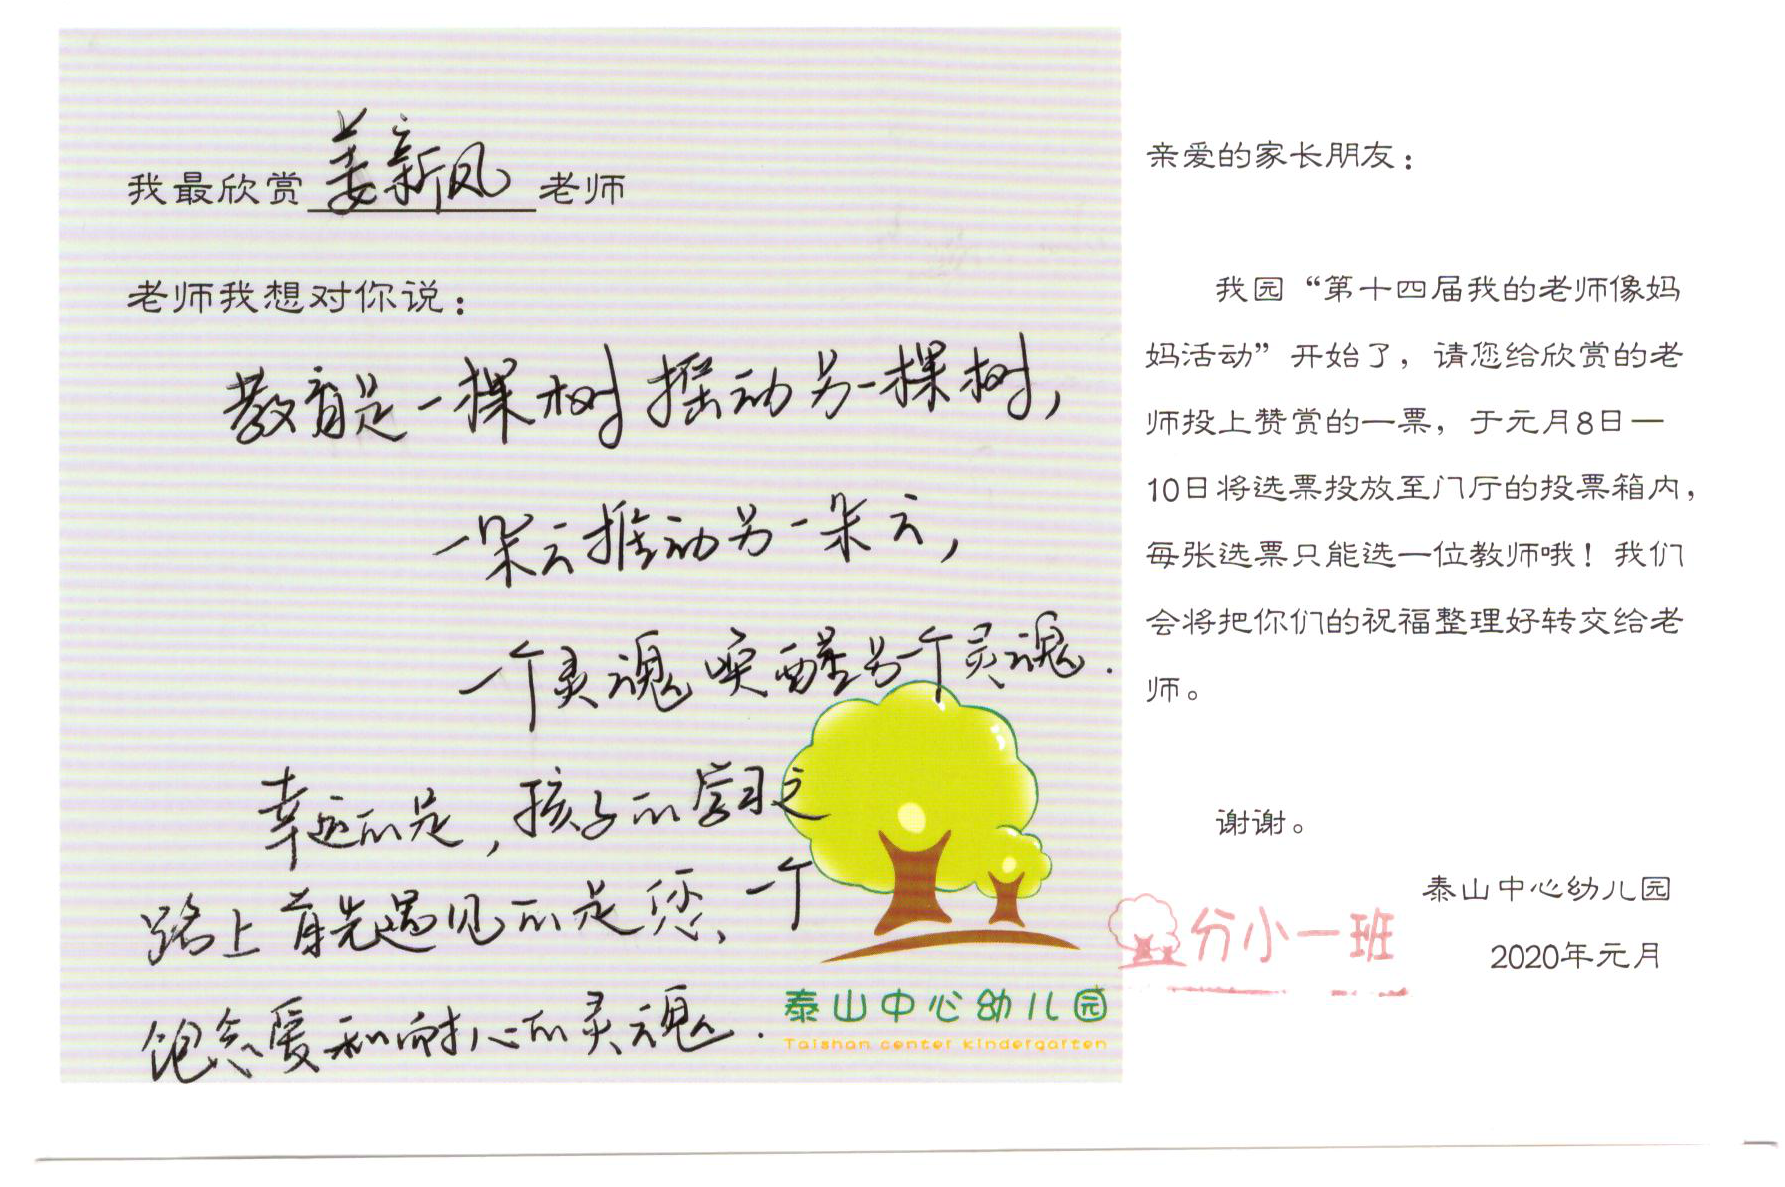 我最欣赏姜新凤老师
老师我想对你说：
教育是一棵树摇动另一棵树，
一朵云推动另一朵云，
一个灵魂唤醒另一个灵魂.
幸运的是，孩子的学习之
路上首先遇见的是您、一个
饱含爱和耐心的灵魂.
泰山中心幼儿园
Taishan center kindergarten
亲爱的家长朋友：
我园“第十四届我的老师像妈
妈活动”开始了，请您给欣赏的老
师投上赞赏的一票，于元月8日—
10日将选票投放至门厅的投票箱内，
每张选票只能选一位教师哦！我们
会将把你们的祝福整理好转交给老
师。
谢谢。
泰山中心幼儿园
分小一班
2020年元月